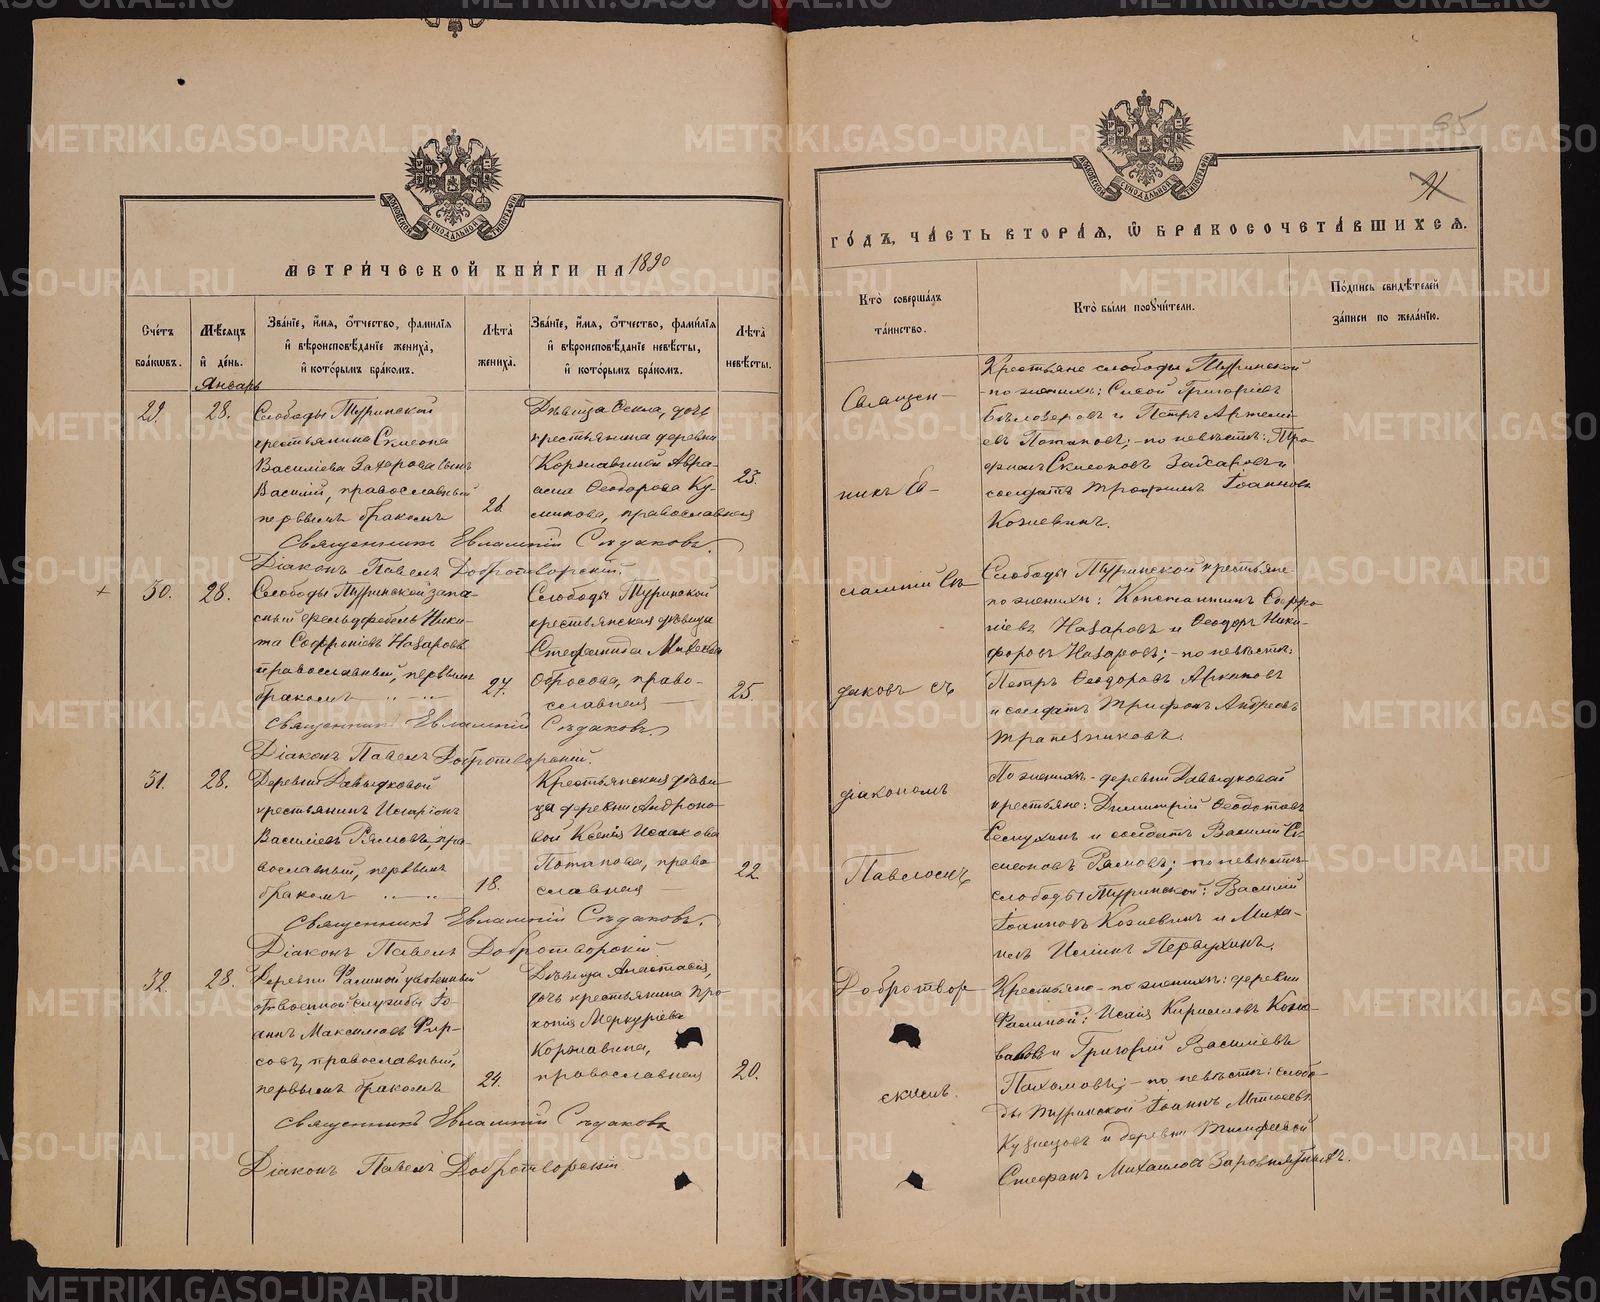 METRIKI.GASO-URAL.RU
95
МОСКОВСКОЙ СѴНОДАЛЬНОЙ ТИПОГРАФІИ
МЕТРИ́ЧЕСКОЙ КНИ́ГИ НА 1890
Сче́тъ бра́кωвъ.
Мѣ́сяцъ и҆ де́нь.
Зва́нїе, и҆́мя, ѻ҆́тчество, фамѝлїя и҆ вѣроисповѣ́данїе жениха̀, и҆ кото́рымъ бра́комъ.
Лѣ́та жениха̀.
Зва́нїе, и҆́мя, ѻ҆́тчество, фамѝлїя и҆ вѣроисповѣ́данїе невѣ́сты, и҆ кото́рымъ бра́комъ.
Лѣ́та невѣ́сты.
Январь
29.
28.
Слободы Туринской
крестьянина Симеона
Василіева Захарова сынъ
Василій, православный
первымъ бракомъ
21.
Дѣвица Фекла, дочь
крестьянина деревни
Коржавиной Авра-
амія Ѳеодорова Ку-
православная
23.
Священникъ Евлампій Сѣдаковъ.
Діаконъ Павелъ Добротворскій.
+ 30.
28.
Слободы Туринской запа-
сный фельдфебель Ники-
та Софроніевъ Назаровъ
православный, первымъ
бракомъ
27.
Слободы Туринской
крестьянская дѣвица
Стефанида Михеева
Обросова, право-
славная
25.
Священникъ Евлампій Сѣдаковъ.
Діаконъ Павелъ Добротворскій.
31.
28.
Деревни Давыдковой
крестьянинъ Иларіонъ
Василіевъ Рямовъ, пра-
вославный, первымъ
бракомъ
18.
Крестьянская дѣви-
ца деревни Андроно-
вой Ксенія Исаакова
Потапова, право-
славная
22
Священникъ Евлампій Сѣдаковъ.
Діаконъ Павелъ Добротворскій
32.
28.
Деревни Фалиной уволенный
отъ военной службы Іо-
аннъ Максимовъ Фир-
совъ, православный,
первымъ бракомъ
24.
Дѣвица Анастасія,
дочь крестьянина Про-
копія Меркуріева
Коржавина,
православная
20.
Священникъ Евлампій Сѣдаковъ
Діаконъ Павелъ Добротворскій
МОСКОВСКОЙ СѴНОДАЛЬНОЙ ТИПОГРАФІИ
ГО́ДЪ, ЧА́СТЬ ВТОРА́Я, Ѽ БРАКОСОЧЕТА́ВШИХСЯ.
Кто̀ соверша́лъ та́инство.
Кто̀ бы́ли порꙋчи́тели.
По́дпись свидѣ́телей за́писи по жела́нїю.
Священ-
никъ Ев-
лампій Сѣ-
даковъ съ
діакономъ
Павломъ
Добротвор-
скимъ.
Крестьяне слободы Туринской
по женихѣ: Савой Григоріевъ
Бѣлозеровъ и Петръ Артемі-
евъ Потаповъ; по невѣстѣ: Тро-
фимъ Симеоновъ Захаровъ и
солдатъ Трофимъ Іоанновъ
Кожевинъ.
Слободы Туринской крестьяне
по женихѣ: Константинъ Софро-
ніевъ Назаровъ и Ѳеодоръ Ники-
форовъ Назаровъ; по невѣстѣ:
Петръ Ѳеодоровъ Аржановъ
и солдатъ Трифонъ Андреевъ
Трапезниковъ.
По женихѣ деревни Давыдковой
крестьяне: Димитрій Ѳеодотовъ
Семухинъ и солдатъ Василій Си-
меоновъ Рямовъ; по невѣстѣ
слободы Туринской: Василій
Іоанновъ Кожевинъ и Миха-
илъ Первухинъ.
Крестьяне по женихѣ: деревни
Фалиной: Исаія Кирилловъ Коно-
валовъ и Григорій Василіевъ
Пахомовъ; по невѣстѣ: слобо-
ды Туринской Іоаннъ Матвеевъ
Кузнецовъ и деревни Тимофеевой
Стефанъ Михаиловъ Заровнятныхъ.